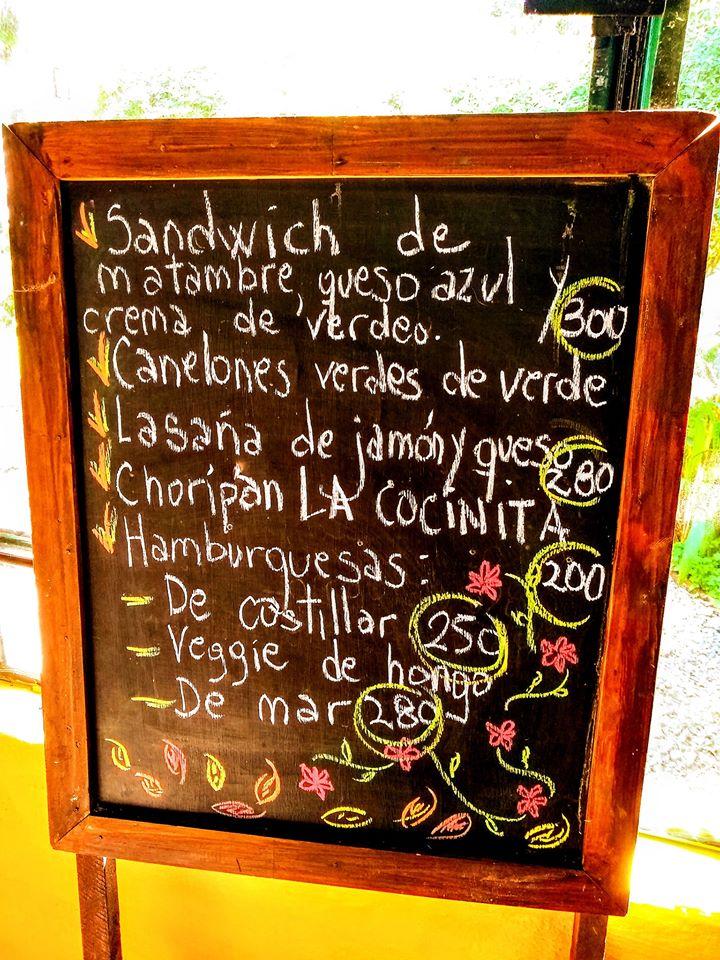 Sandwich de
matambre, queso azul y
crema de verdeo. 300
Canelones verdes de verde
Lasaña de jamón y queso 280
Choripán LA COCINITA
200
Hamburguesas:
- De costillar 250
- Veggie de hongo
- De mar 280